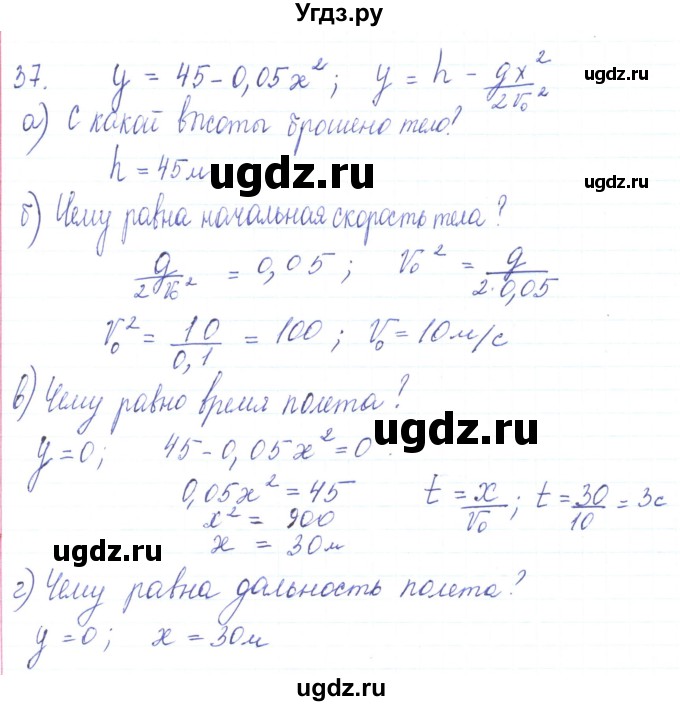 Угдз.ру
37. y = 45 - 0,05x²; y = h - gx²/2v₀²
ugdz.ru
а) С какой высоты брошено тело?
h = 45м
ugdz.ru
ugdz.ru
б) Чему равна начальная скорость тела?
g/2v₀² = 0,05; v₀² = g/2·0,05
v₀² = 10/0,1 = 100; v₀ = 10м/с
в) Чему равно время полета?
ugdz.ru
y = 0; 45 - 0,05x² = 0
0,05x² = 45 t = x/v₀; t = 30/10 = 3с
x² = 900
ugdz.ru
x = 30м
г) Чему равна дальность полета?
y = 0; x = 30м
ugdz.ru
ugdz.ru